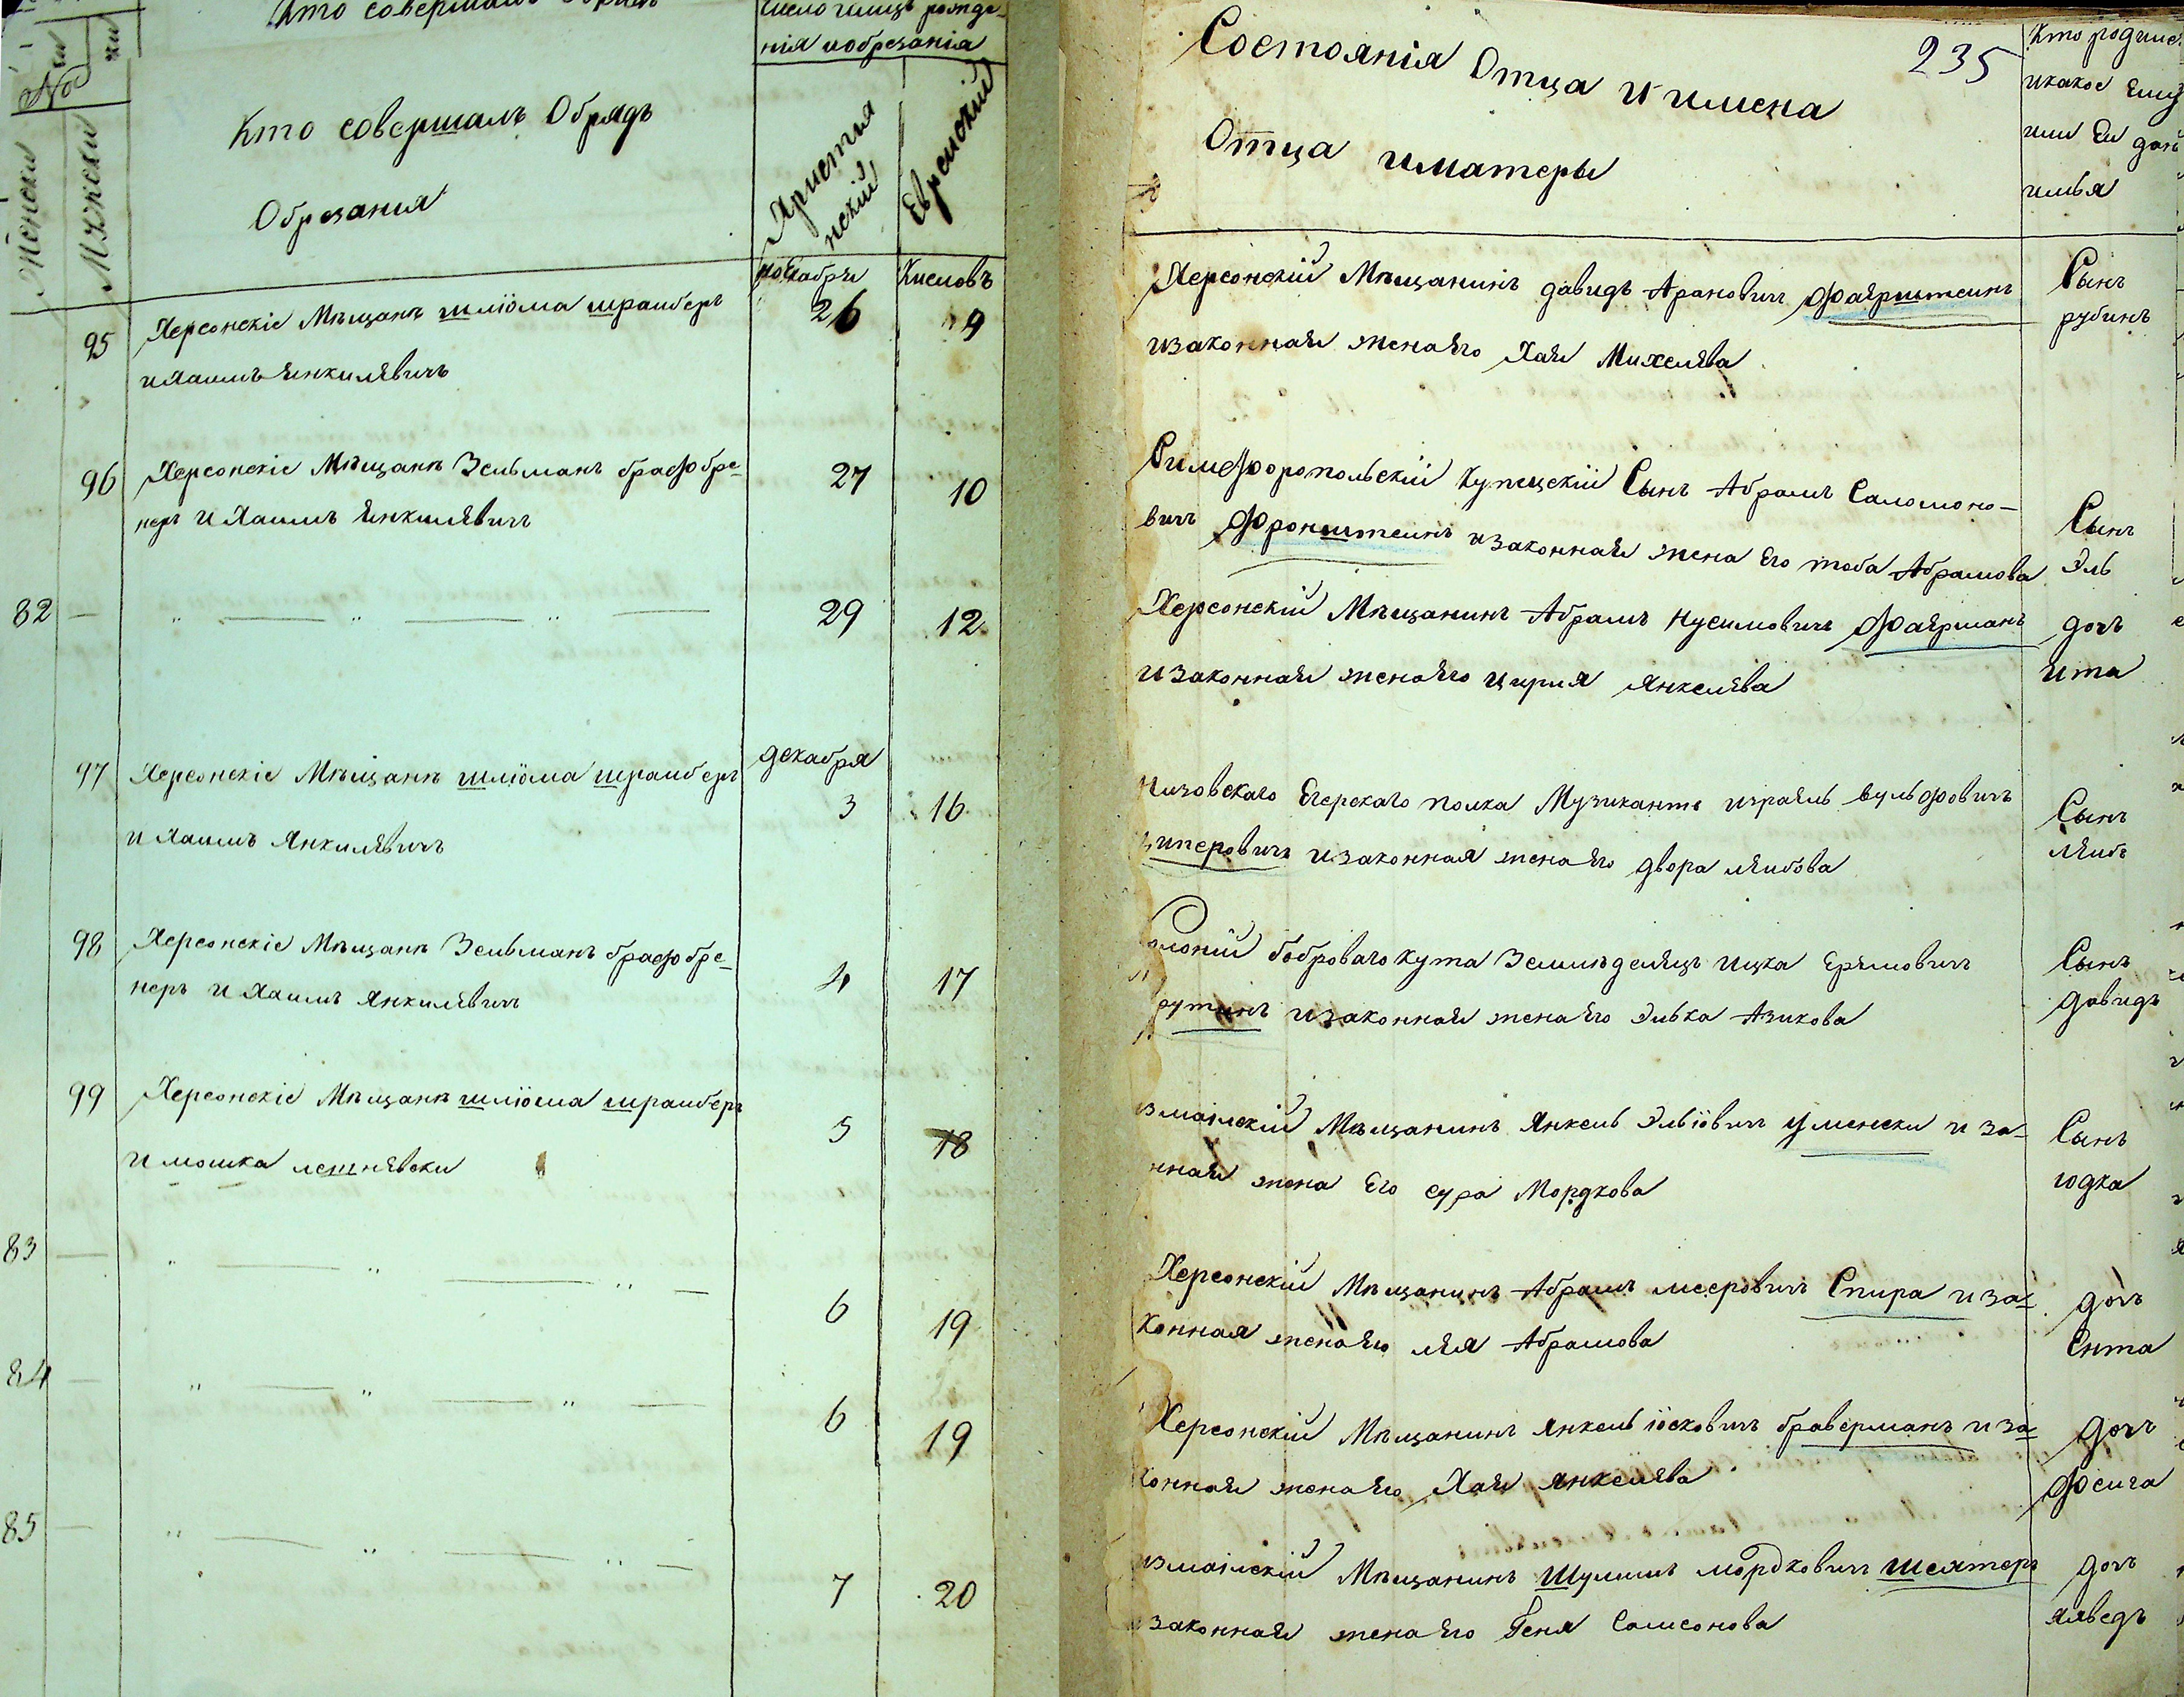 Кто совершалъ Обрядъ
Обрезания
Число месяцъ рожде-
нія иобрезанія
Христия
нскій
Еврейскій
Женски
Мужески
ноекабря
Кислевъ
95
Херсонскіе Мѣщанѣ шліома шрайберъ
и Хаимъ Янкилевичъ
26
9
96
Херсонскіе Мѣщанѣ Зельманъ брафобре-
неръ и Хаимъ Янкилевичъ
27
10
82
29
12
декабря
97
Херсонскіе Мѣщанѣ шліома шрайберъ
и Хаимъ Янкилевичъ
3
16
98
Херсонскіе Мѣщанѣ Зельманъ брафобре-
неръ и Хаимъ Янкилевичъ
4
17
99
Херсонскіе Мѣщанѣ шліома шрайберъ
и мошка лешневски
5
18
83
6
19
84
6
19
85
7
20
Состоянія Отца и имена
Отца иматеры
235
Кто родился
икакое Ему
или Ей дано
имья
Херсонскій Мѣщанинъ давидъ Арановичъ Фаерштеинъ
изаконная женаЕго Хая Михелева
Сынъ
рубинъ
Симферопольскій Купецскій Сынъ Абрамъ Саломоно-
вичъ Фронштеинъ изаконная жена Его тоба Абрамова
Сынъ
Эль
Херсонскій Мѣщанинъ Абрамъ Нусимовичъ Фаерманъ
изаконная женаЕго ципря Янкелева
дочъ
ита
Низовскаго Егерскаго полка Музикантъ израель вульфовичъ
циперовичъ изаконная женаЕго двора лейбова
Сынъ
лейбъ
боброваго кута Земледелецъ ицка Еремовичъ
рутинъ изаконная женаЕго Элька Азикова
Сынъ
давидъ
измаілскій Мѣщанинъ Янкель Эльіовичъ уменски и за-
нная жена Его сура Мордкова
Сынъ
юдка
Херсонскій Мѣщанинъ Абрамъ мееровичъ Спира и за-
конная женаЕго лея Абрамова
дочъ
Ента
Херсонскій Мѣщанинъ Янкель іосковичъ браверманъ и за
конная женаЕго Хая Янкелева
дочъ
Фейга
измаілскій Мѣщанинъ Шулимъ мордковичъ Шехтеръ
изаконная женаЕго Геня Самсонова
дочъ
яхведъ